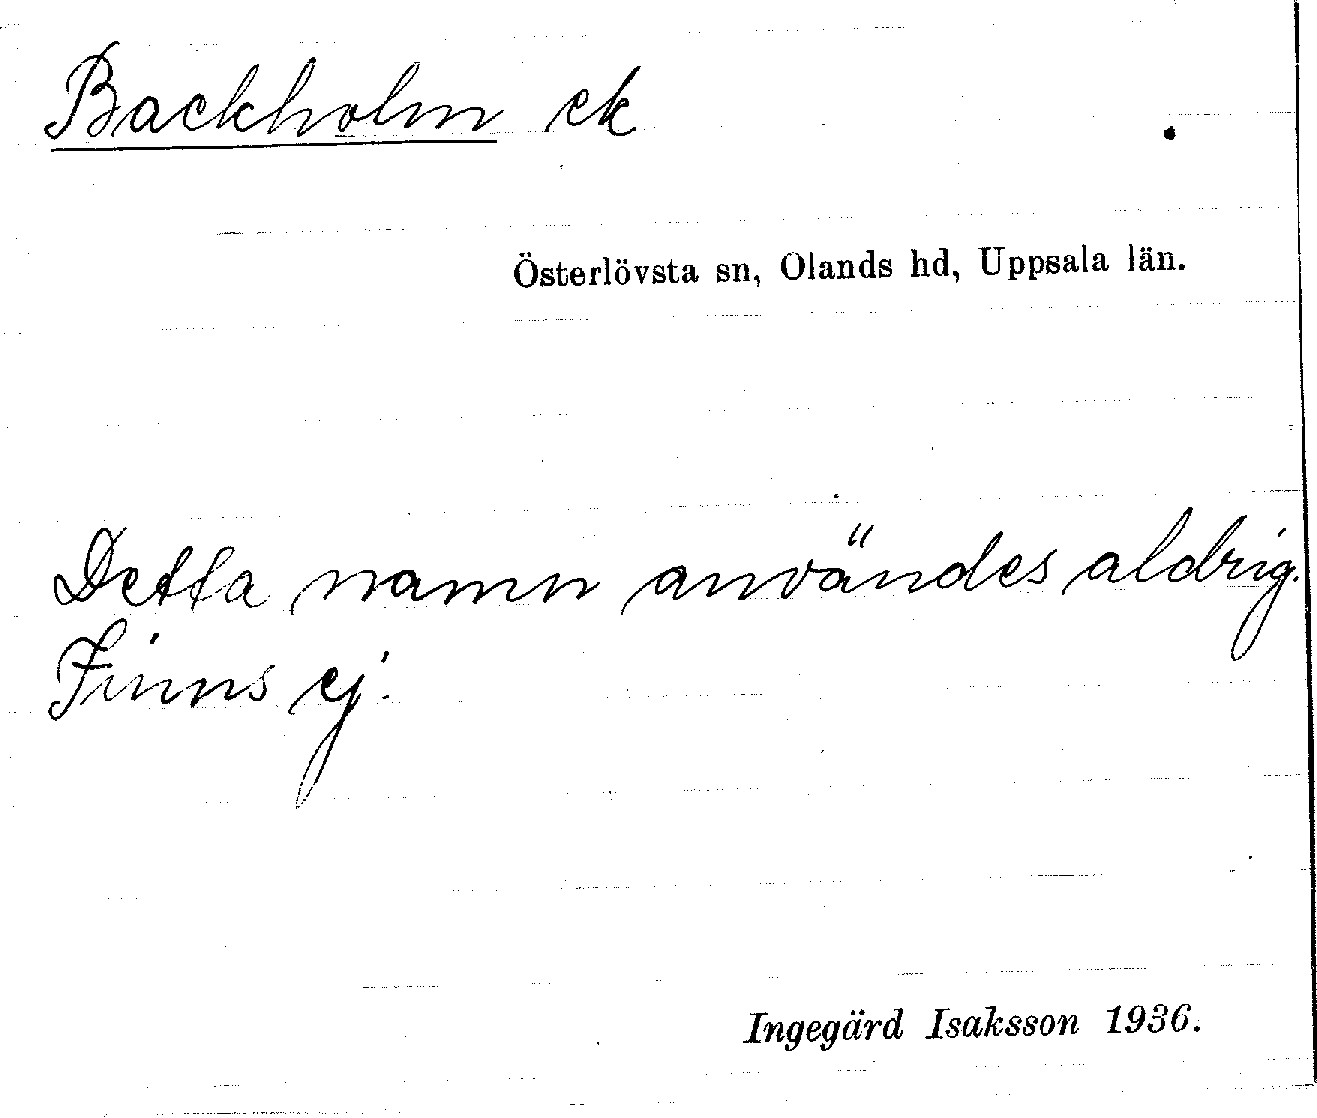 Backholm ek
Österlövsta sn, Olands hd, Uppsala län.
Detta namn användes aldrig.
Finns ej.
Ingegärd Isaksson 1936.